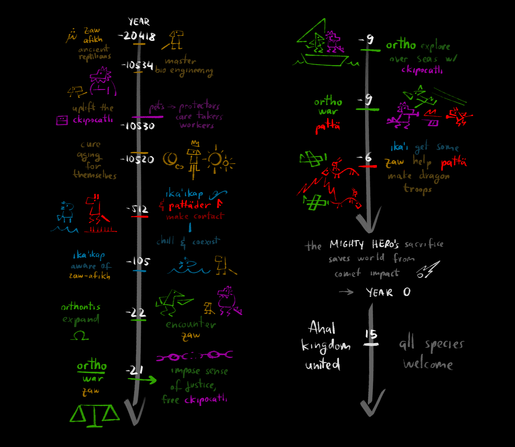 YEAR
-20418
zaw
afikh
ancient
reptilians
-10534
master
bio enginering
uplift the
ckipocatli
pets → protectors
care takers
workers
-10530
cure
aging
for
themselves
-10520
ika'ikap
& pattáder
make contact
-512
chill & coexist
ika'ikap
aware of
zaw-afikh
-105
orthontis
expand
-22
encounter
zaw
ortho
war
zaw
-21
impose sense
of justice,
free ckipocatli
-9
ortho explore
over seas w/
ckipocatli
ortho
war
pattá
-9
-6
ika's get some
zaw help pattá
make dragon
troops
the MIGHTY HERO'S sacrifice
saves world from
comet impact
→ YEAR 0
Ahal
kingdom
united
15
all species
welcome